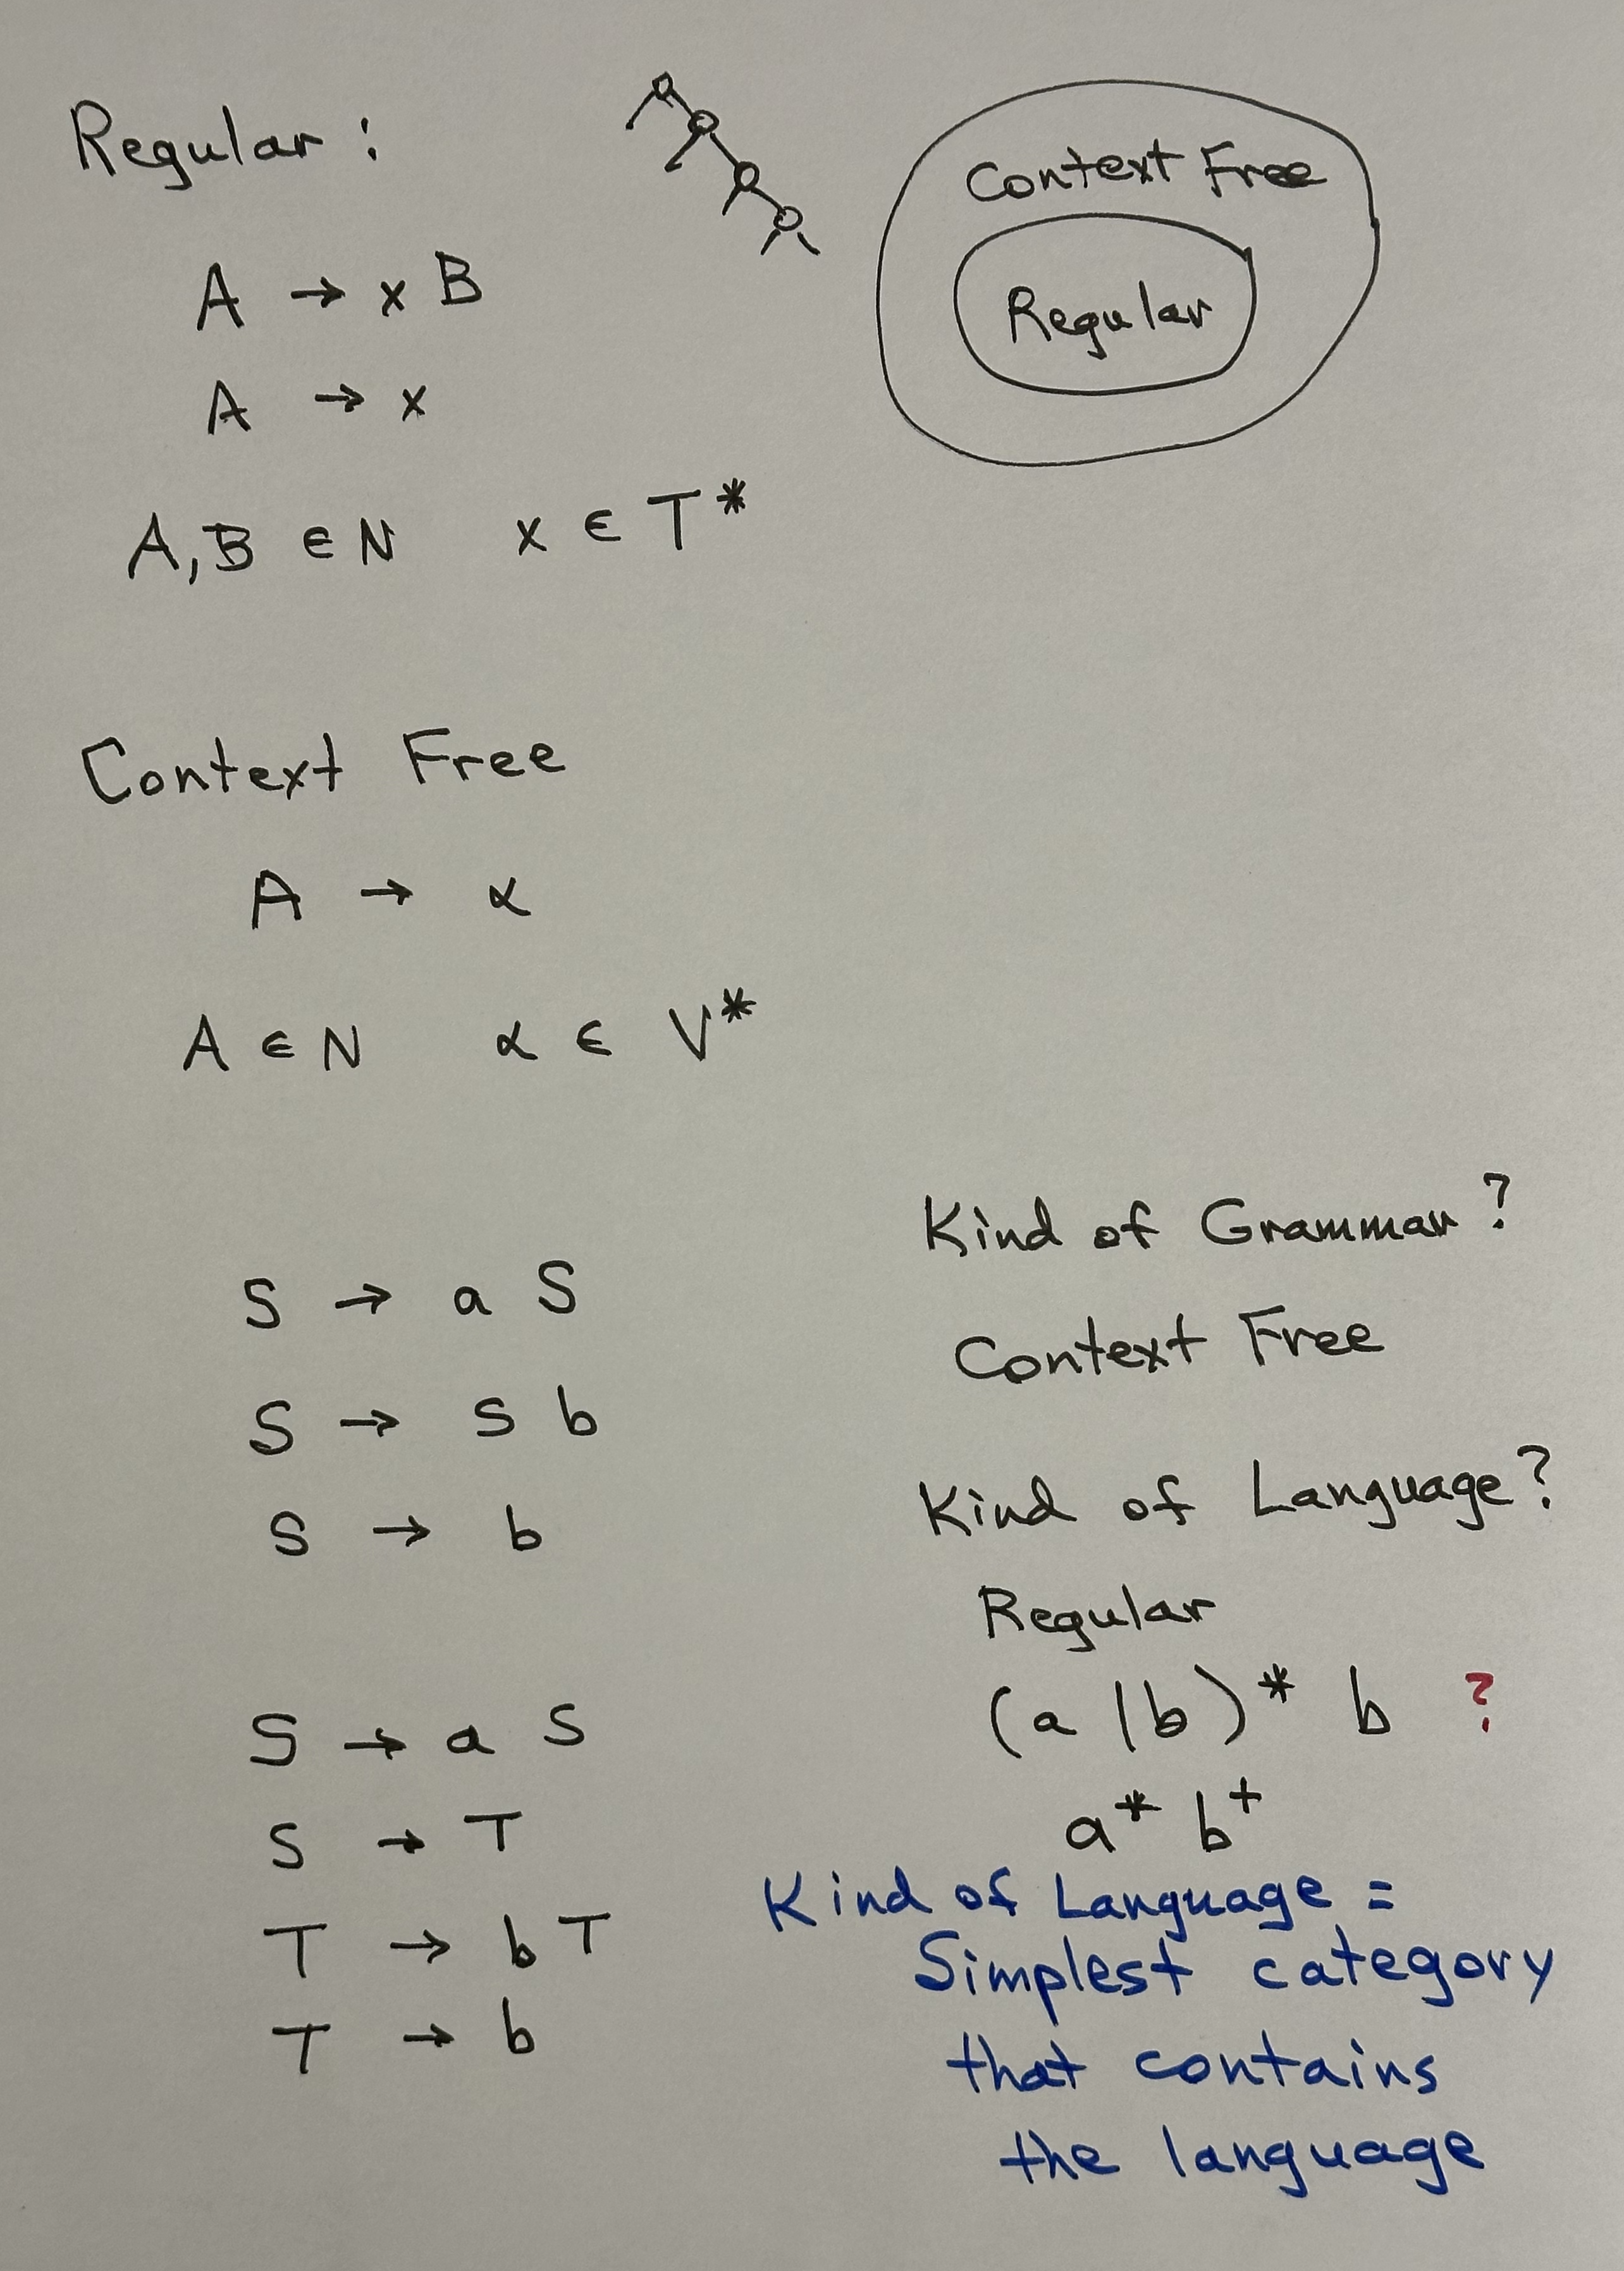 Regular :
A → x B
A → x
A, B ∈ N x ∈ T*
Context Free
Regular
Context Free
A → α
A ∈ N α ∈ V*
S → a S
S → S b
S → b
Kind of Grammar ?
Context Free
Kind of Language ?
Regular
(a | b)* b ?
a* b+
S → a S
S → T
T → b T
T → b
Kind of Language =
Simplest category
that contains
the language